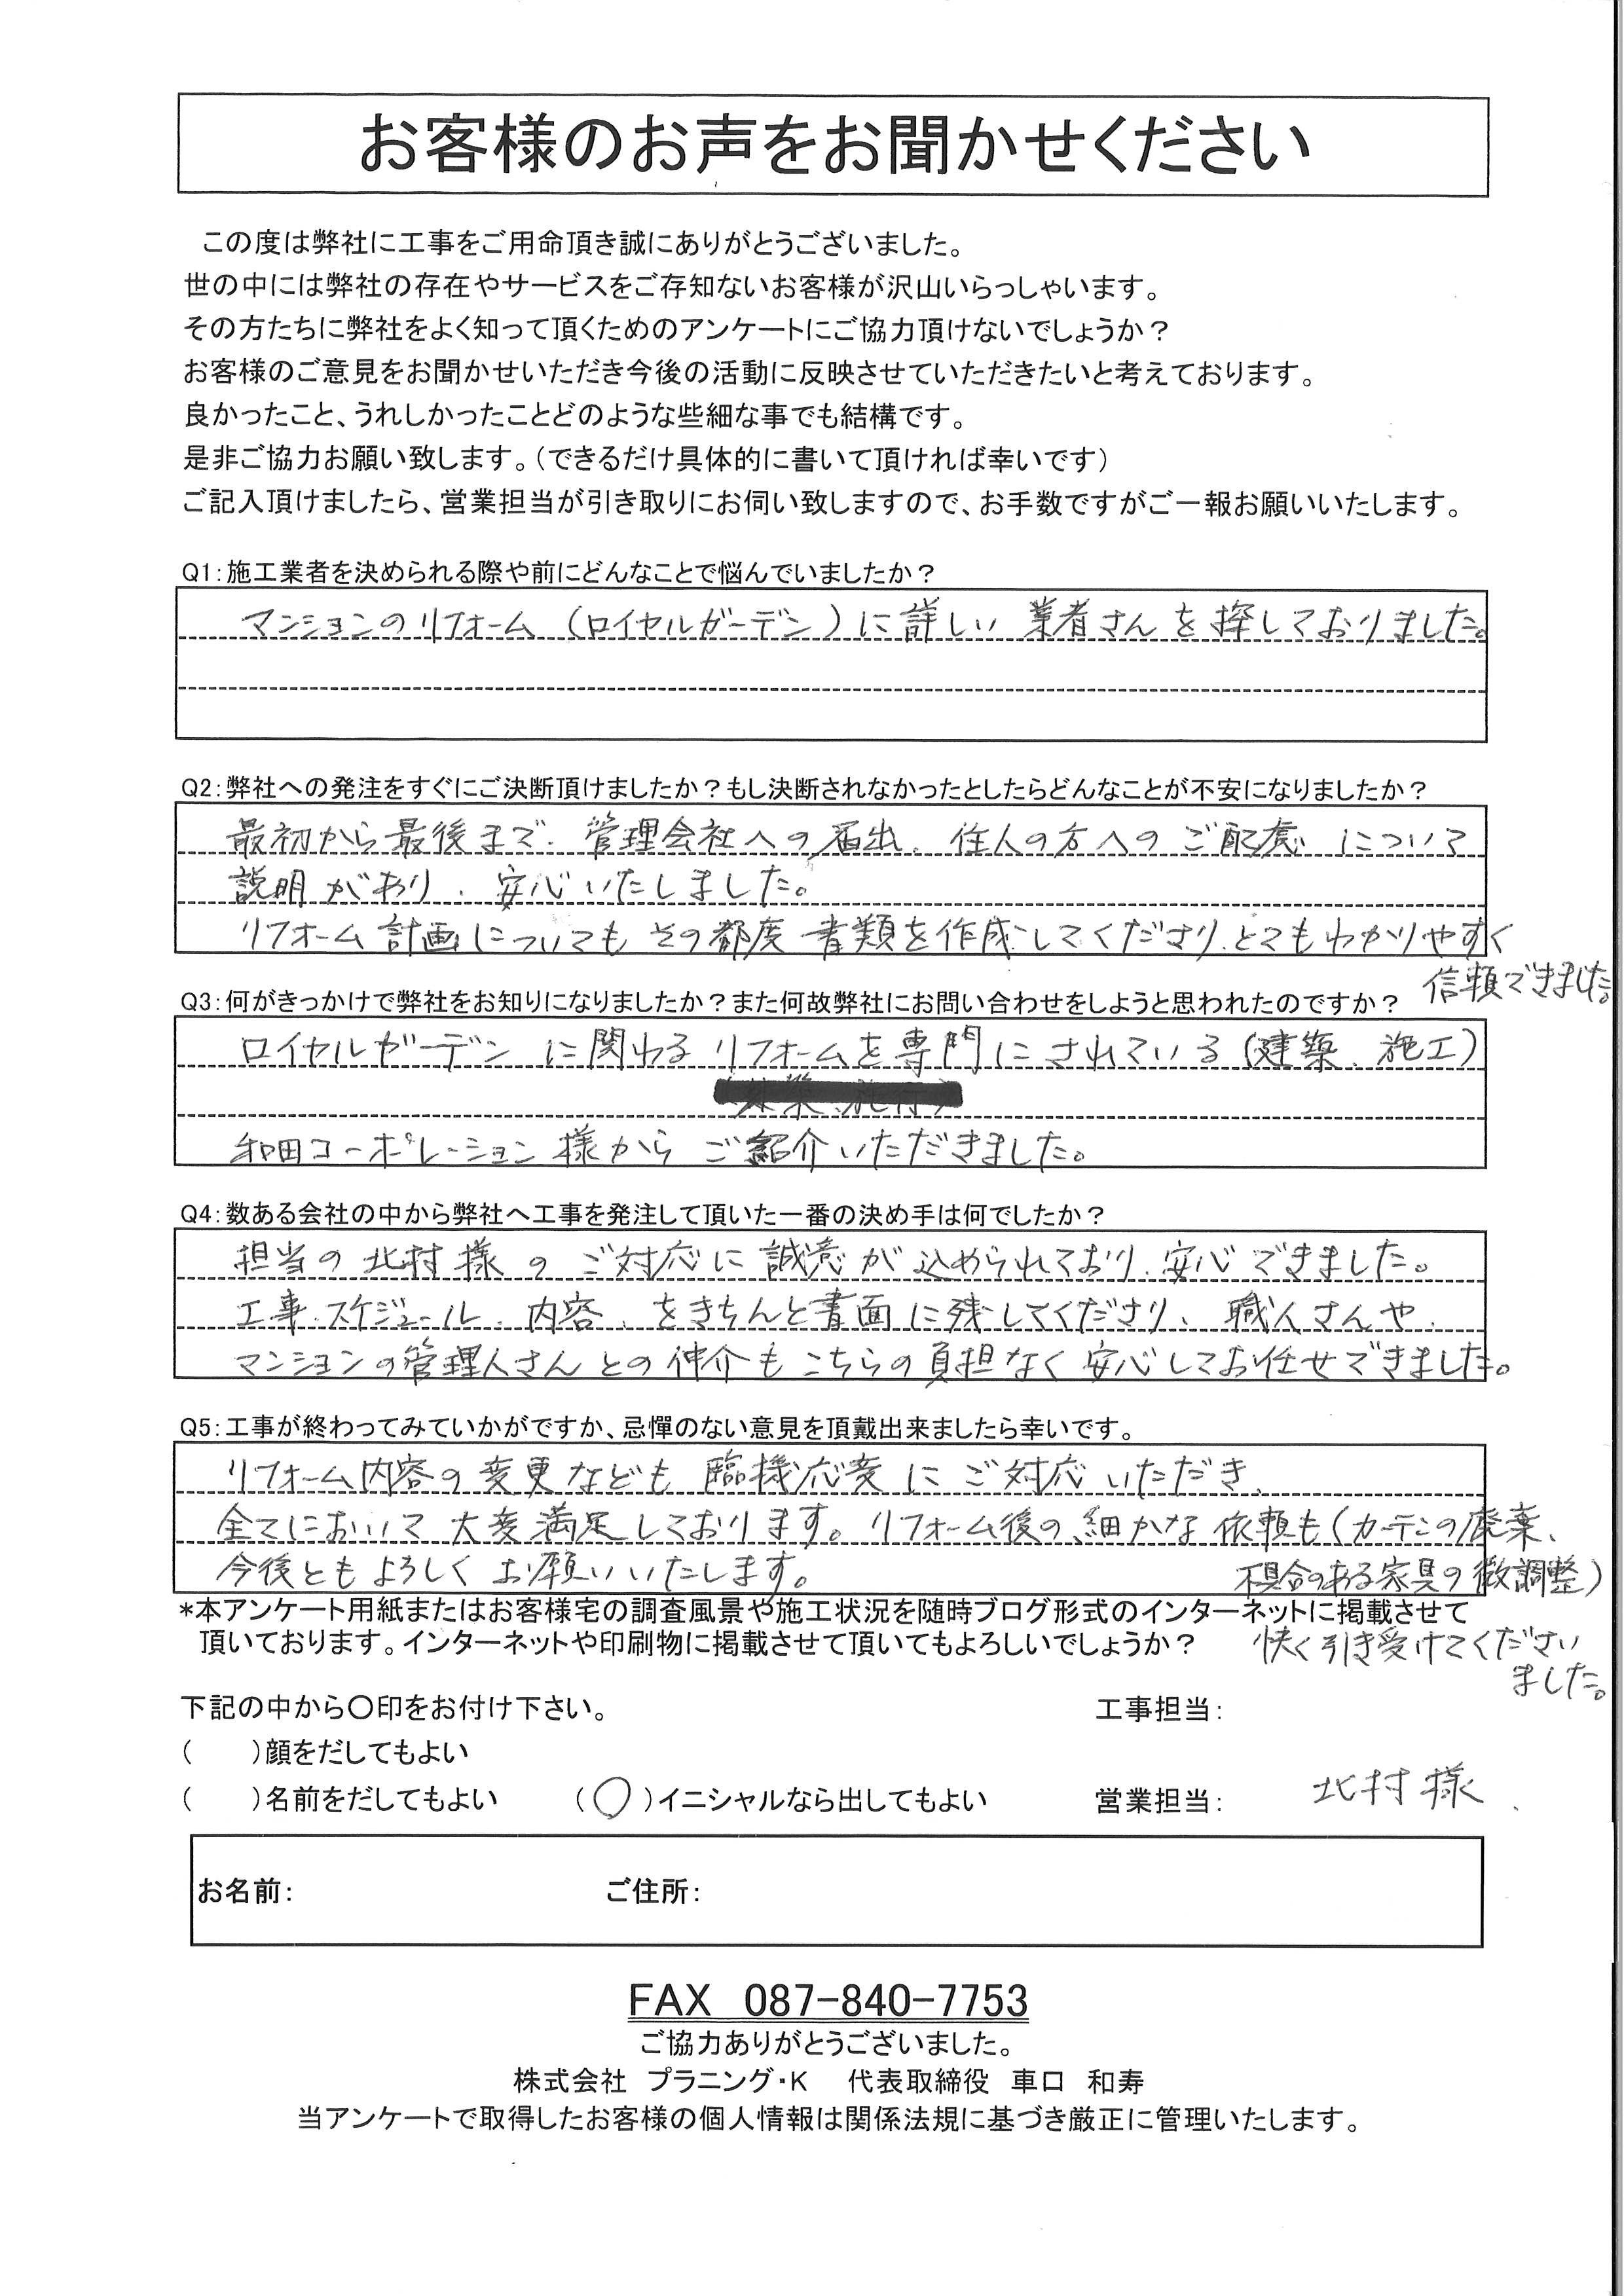 お客様のお声をお聞かせください
この度は弊社に工事をご用命頂き誠にありがとうございました。
世の中には弊社の存在やサービスをご存知ないお客様が沢山いらっしゃいます。
その方たちに弊社をよく知って頂くためのアンケートにご協力頂けないでしょうか？
お客様のご意見をお聞かせいただき今後の活動に反映させていただきたいと考えております。
良かったこと、うれしかったことどのような些細な事でも結構です。
是非ご協力お願い致します。（できるだけ具体的に書いて頂ければ幸いです）
ご記入頂けましたら、営業担当が引き取りにお伺い致しますので、お手数ですがご一報お願いいたします。
Q1：施工業者を決められる際や前にどんなことで悩んでいましたか？
マンションのリフォーム（ロイヤルガーデン）に詳しい業者さんを探しておりました。
Q2：弊社への発注をすぐにご決断頂けましたか？もし決断されなかったとしたらどんなことが不安になりましたか？
最初から最後まで、管理会社への届出、住人の方へのご配慮について
説明があり、安心いたしました。
リフォーム計画についてもその都度書類を作成してくださり、とてもわかりやすく
信頼できました。
Q3：何がきっかけで弊社をお知りになりましたか？また何故弊社にお問い合わせをしようと思われたのですか？
ロイヤルガーデンに関わるリフォームを専門にされている（建築、施工）
和田コーポレーション様からご紹介いただきました。
Q4：数ある会社の中から弊社へ工事を発注して頂いた一番の決め手は何でしたか？
担当の北村様のご対応に誠意が込められており、安心できました。
工事、スケジュール、内容、をきちんと書面に残してくださり、職人さんや、
マンションの管理人さんとの仲介もこちらの負担なく安心してお任せできました。
Q5：工事が終わってみていかがですか、忌憚のない意見を頂戴出来ましたら幸いです。
リフォーム内容の変更なども臨機応変にご対応いただき、
全てにおいて大変満足しております。リフォーム後の細かな依頼も（カーテンの廃棄、
不具合のある家具の微調整）
快く引き受けてください
ました。
今後ともよろしくお願いいたします。
*本アンケート用紙またはお客様宅の調査風景や施工状況を随時ブログ形式のインターネットに掲載させて
頂いております。インターネットや印刷物に掲載させて頂いてもよろしいでしょうか？
下記の中から○印をお付け下さい。
工事担当：
（　　）顔をだしてもよい
（　　）名前をだしてもよい　（○）イニシャルなら出してもよい
営業担当： 北村様
お名前：　ご住所：
FAX 087-840-7753
ご協力ありがとうございました。
株式会社 プラニング・K 代表取締役 車口 和寿
当アンケートで取得したお客様の個人情報は関係法規に基づき厳正に管理いたします。